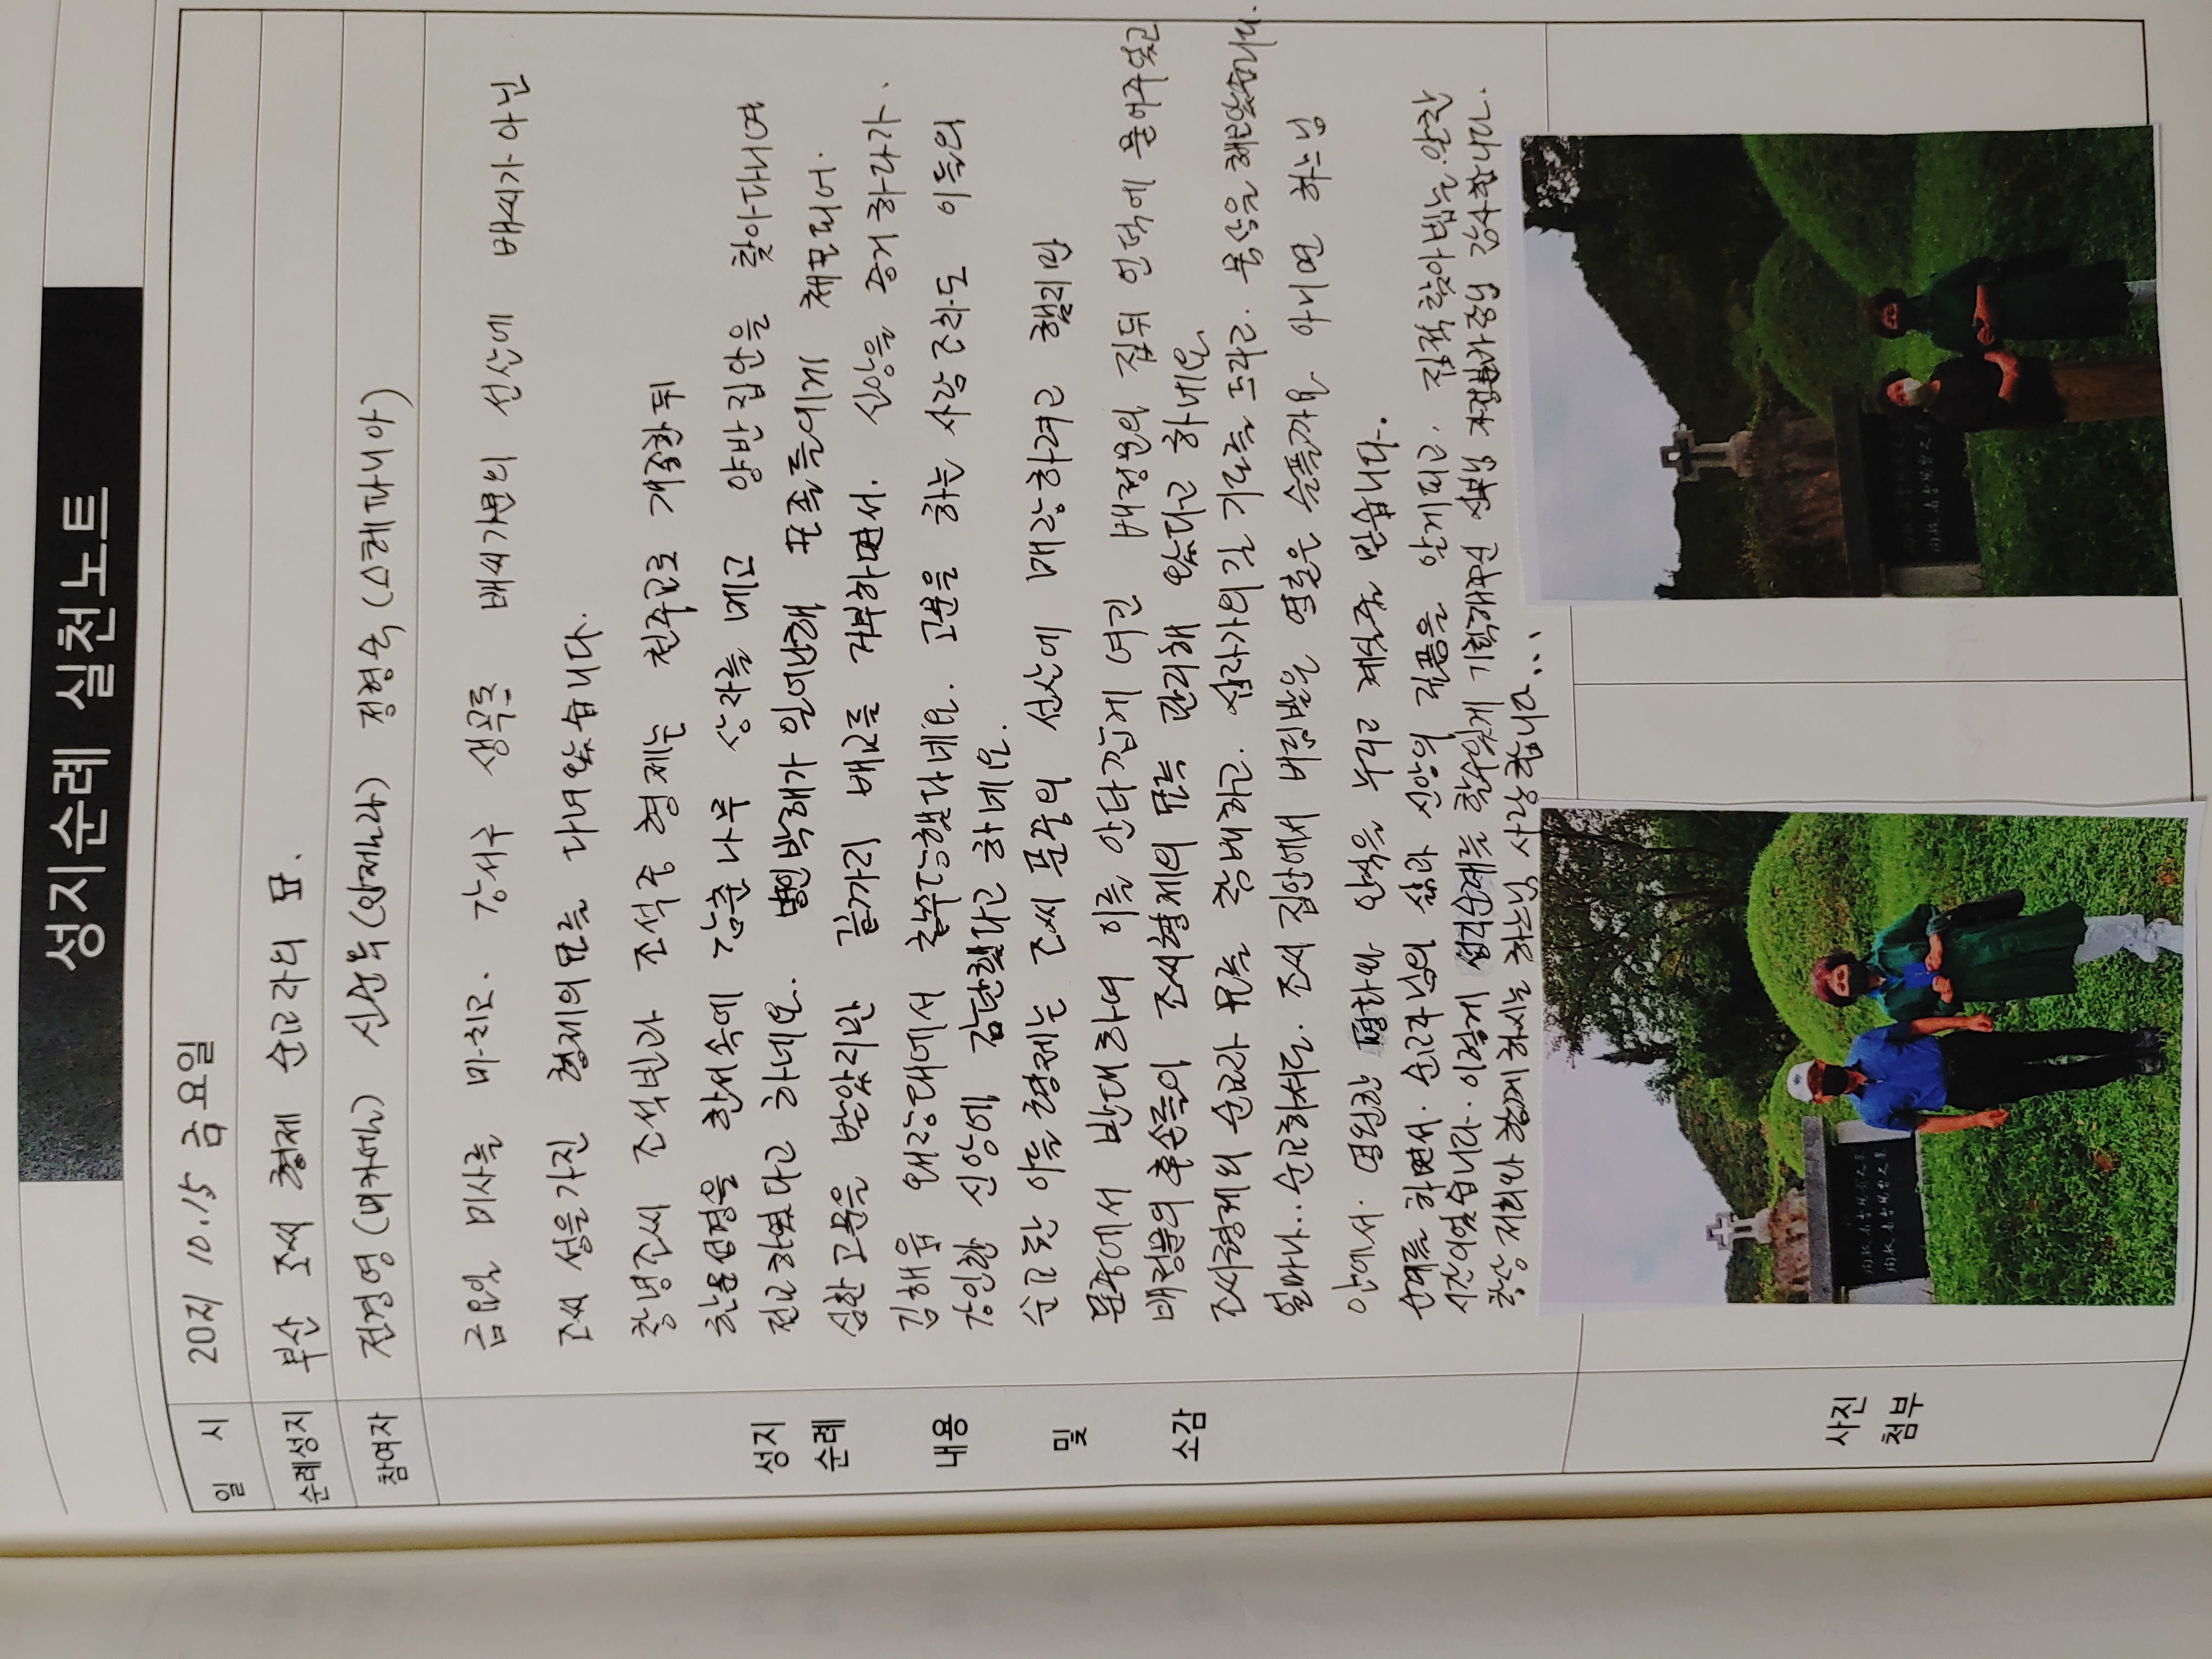 성지순례 실천노트
일 시
2021 10.15 금요일
순례성지
부산 조씨 형제 순교자의 묘.
참여자
전경영(미카엘) 신순옥(안젤라) 정형숙(스테파니아)
성지
순례
내용
및
소감
금요일 미사를 마치고. 강서구 생곡동 배씨가문의 선산에 배씨가 아닌
조씨 성을 가진 형제의 묘를 다녀왔습니다.
창녕조씨 조석빈과 조석증 형제는 천주교로 개종한 뒤
한문성경을 한서속에 감춘 나무 상자를 메고 양반집안을 찾아다니며
전교하였다고 하네요. 병인박해가 일어난해 포졸들에게 체포되어.
심한 고문을 받았지만 끝까지 배교를 거부하면서. 신앙을 증거하다가.
김해읍 왜장대에서 참수당했다네요. 고문을 하는 사람조차도 이들의
강인한 신앙에 감탄했다고 하네요.
순교한 이들 형제는 조씨 문중의 선산에 매장하려고 했지만
문중에서 반대하여 이를 안타깝게 여긴 배정문의 집뒤 언덕에 묻어주었고
배정문의 후손들이 조씨형제의 묘를 관리해 왔다고 하네요.
조씨형제의 순교자 묘를 참배하고. 십자가의길 기도를 드리고. 묵상을 해보았습니다.
얼마나.. 순교하셔도. 조씨 집안에서 버림받은 영혼은 슬플까요 아니면 하느님
안에서. 영원한 평화와 안식을 누리고 계실줄 믿습니다.
순례를 하면서. 순교자님의 삶과 신앙의 깊음을 알게되고. 직접 찾아뵙는 알찬
시간이었습니다. 이렇게 성지순례를 할수있게 기획해주신 신부님 가정분과장님 감사합니다.
항상 저희와 함께 하시는 하느님 사랑합니다...
사진
첨부